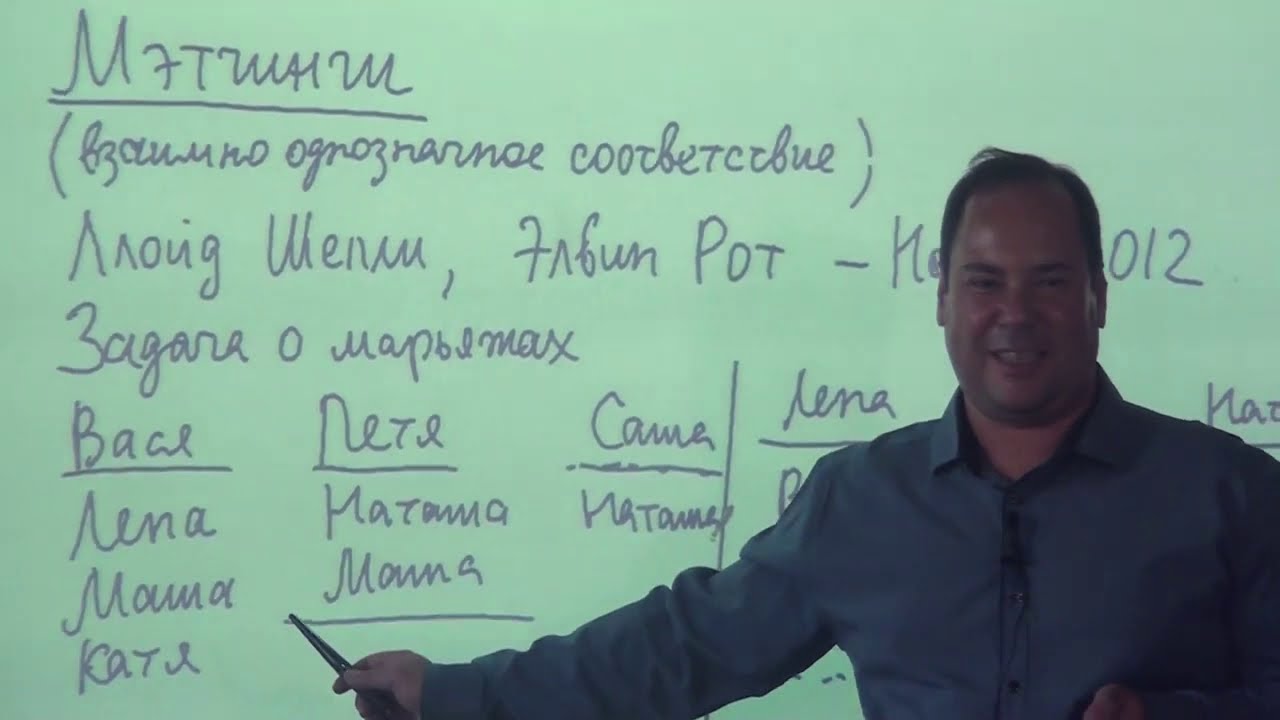 Мэтчинги
(взаимно однозначное соответствие)
Ллойд Шепли, Элвин Рот – 2012
Задача о марьяжах
Вася Петя Саша Лена
Лена Наташа Наташа
Маша Маша
Катя